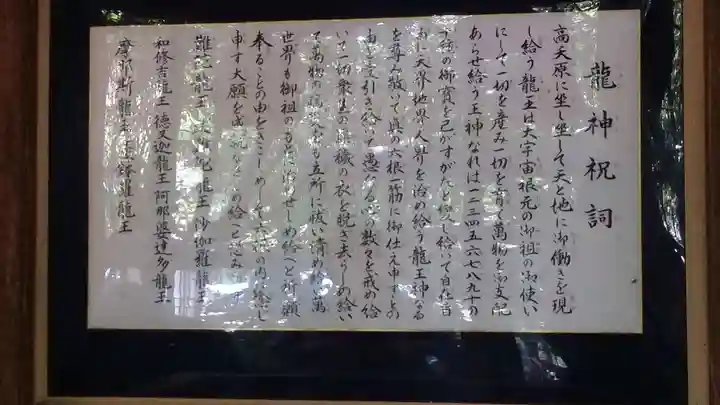 龍神祝詞
高天原に坐し坐して天と地に御働きを現
し給う龍王は大宇宙根元の御祖の御使い
にして一切を産み一切を育て萬物を御支配
あらせ給う王神なれば一二三四五六七八九十の
十種の御寶を己がすがたと変じ給いて自在自
に天界地界人界を治め給う龍王神なる
を尊み敬いて真の六根一筋に御仕え申すことの
由を受引き給いて愚かなる心の数々を戒め給
いて一切衆生の罪穢の衣を脱ぎ去らしめ給い
て萬物の病災をも立所に祓い清め給い萬
世界も御祖のもとに治めせしめ給へと祈願
奉ることの由をきこしめして六根の内に念じ
申す大願を成就なさしめ給へと恐み
難陀龍王 龍王 沙伽羅龍王
和修吉龍王 徳叉迦龍王 阿那婆達多龍王
摩那斯龍王 優鉢羅龍王